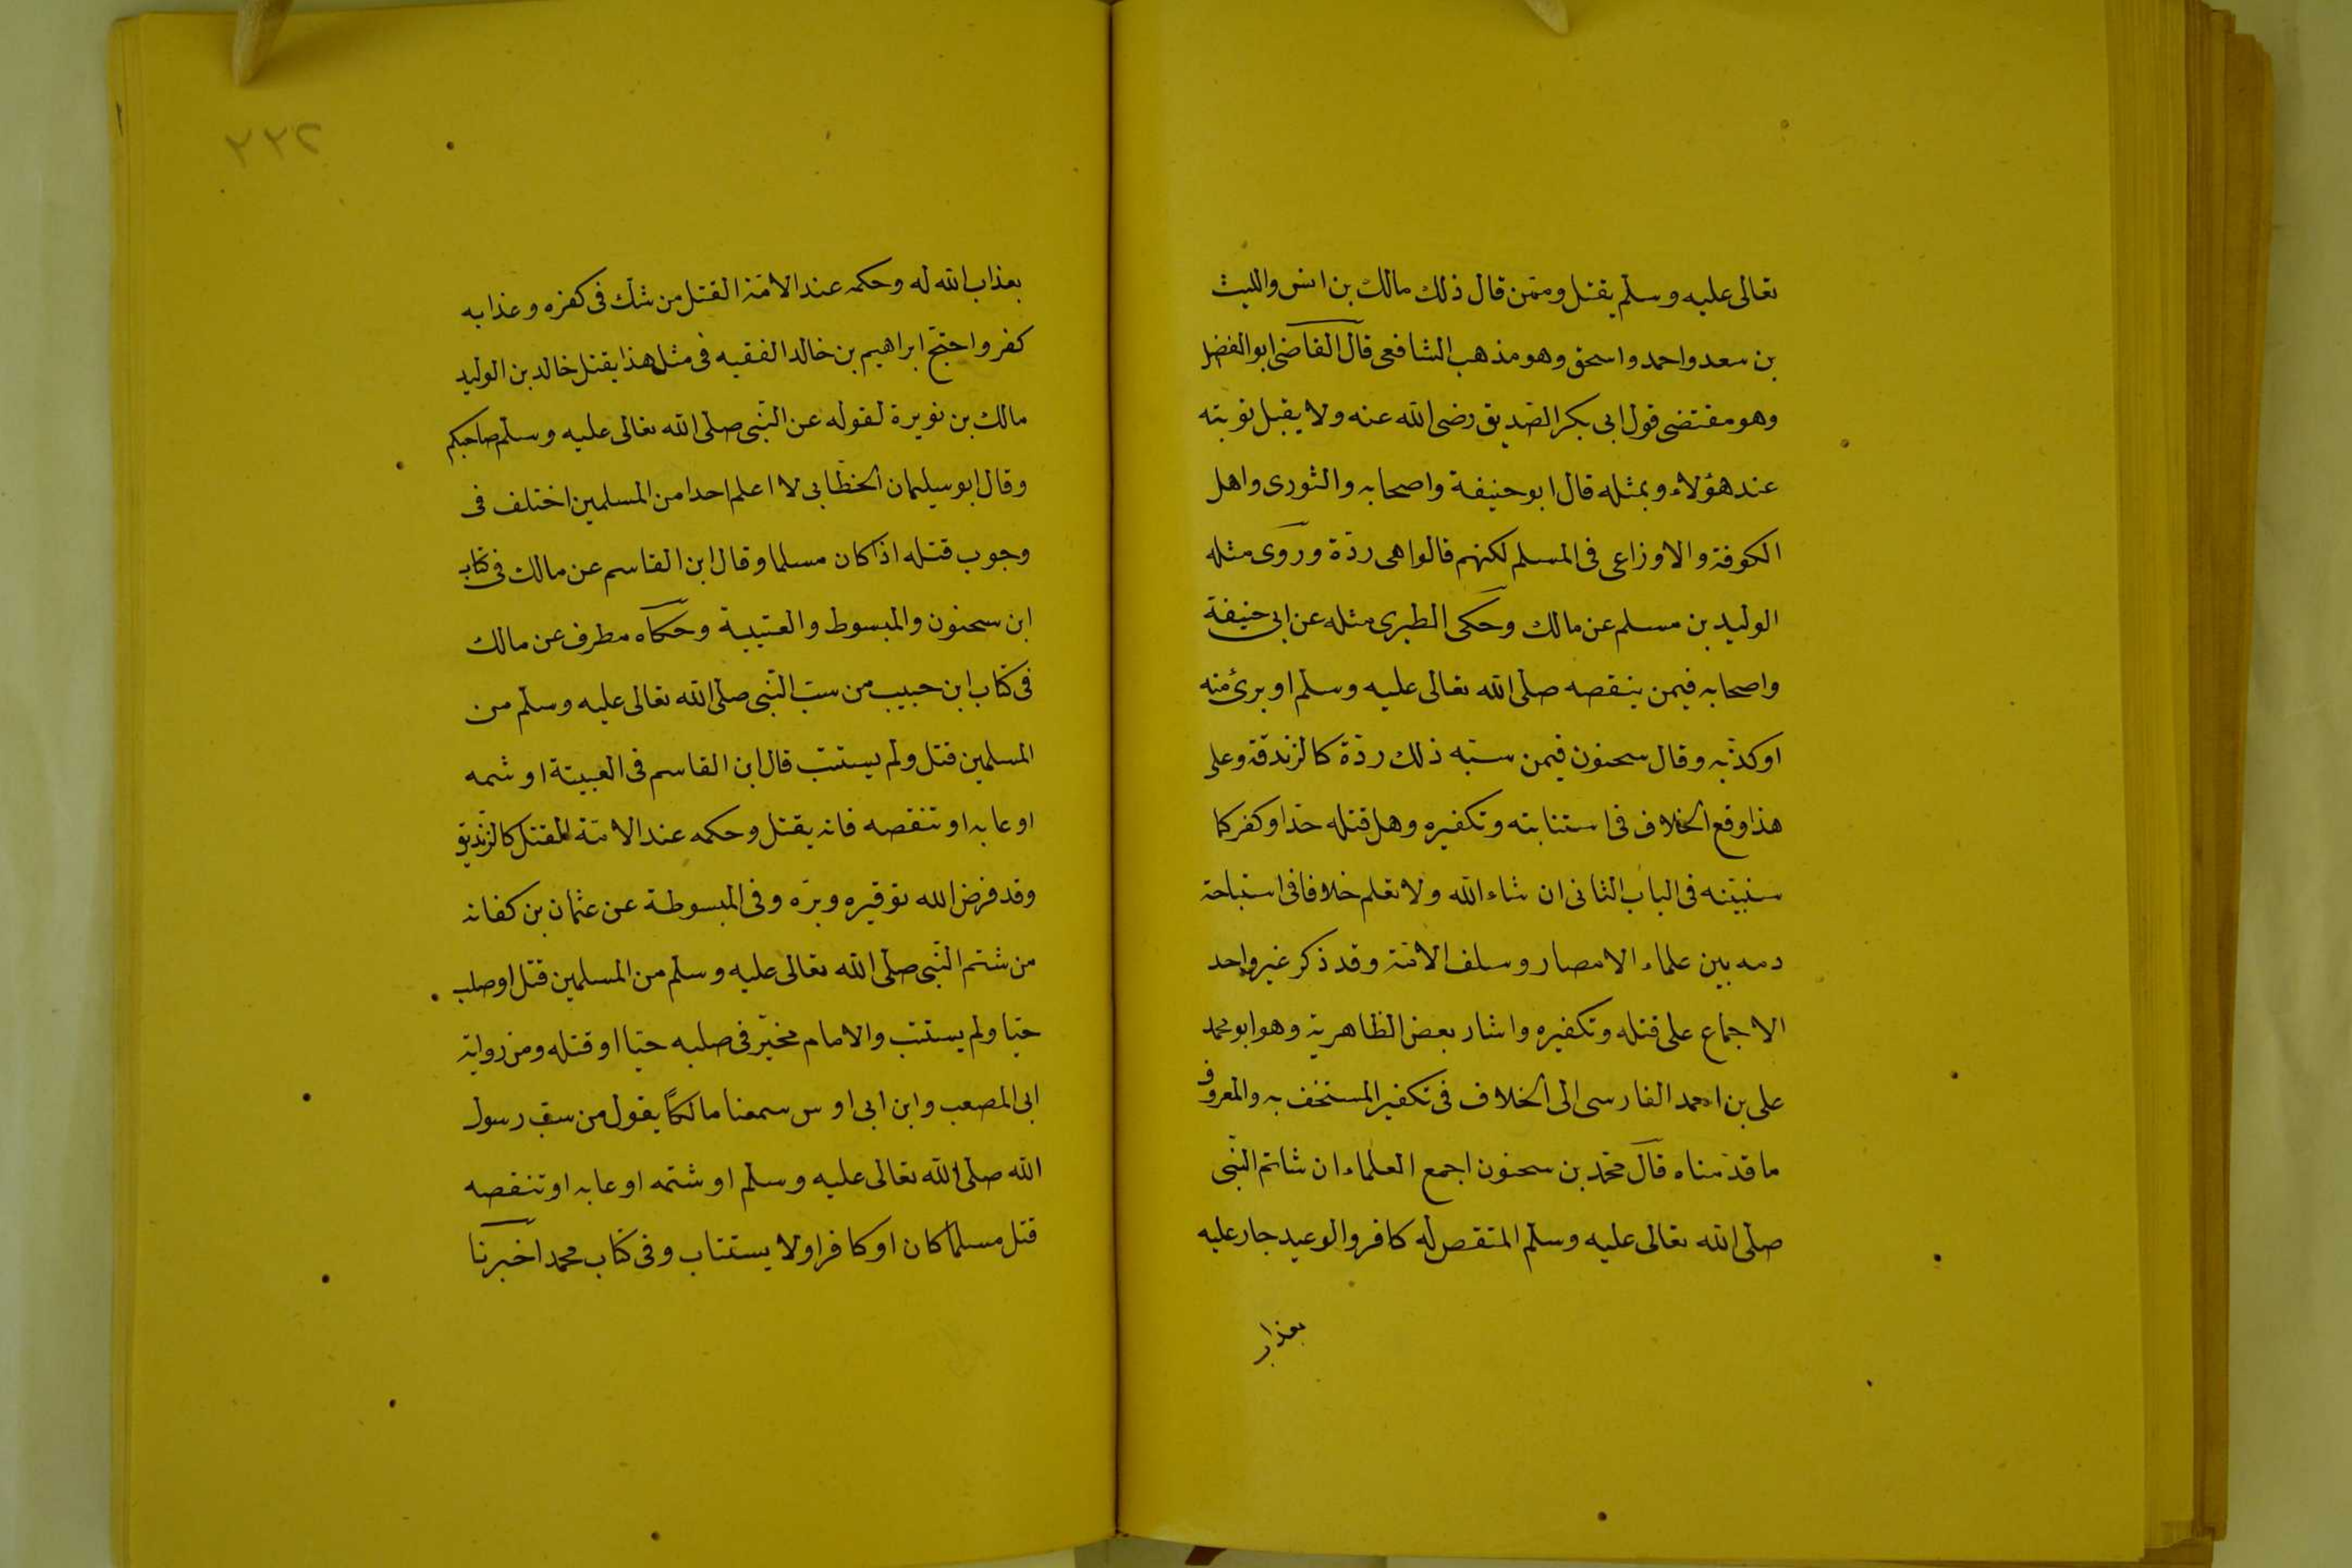 تعالى عليه وسلم يقتل وممّن قال ذلك مالك بن انس والليث
بن سعد واحمد واسحق وهو مذهب الشافعى قال القاضى ابو الفضل
وهو مقتضى قول ابى بكر الصّديق رضى الله عنه ولا يقبل توبته
عند هؤلاء وبمثله قال ابو حنيفة واصحابه والثورى واهل
الكوفة والاوزاعى فى المسلم لكنهم قالوا هى ردّة وروى مثله
الوليد بن مسلم عن مالك وحكى الطبرى مثله عن ابى حنيفة
واصحابه فيمن ينقصه صلى الله تعالى عليه وسلم او برئ منه
او كذّبه وقال سحنون فيمن سبّه ذلك ردّة كالزندقة وعلى
هذا وقع الخلاف فى استتابته وتكفيره وهل قتله حدّ او كفر كما
سنبيّنه فى الباب الثانى ان شاء الله ولا نعلم خلافا فى استباحة
دمه بين علماء الامصار وسلف الامّة وقد ذكر غير واحد
الاجماع على قتله وتكفيره واشار بعض الظاهرية وهو ابو محمد
على بن احمد الفارسى الى الخلاف فى تكفير المستخف به والمعروف
ما قدّمناه قال محمّد بن سحنون اجمع العلماء ان شاتم النّبى
صلى الله تعالى عليه وسلم المتنقص له كافر والوعيد جار عليه
بعذاب
٢٢٢
بعذاب الله له وحكمه عند الامّة القتل من شك فى كفره وعذابه
كفر واحتجّ ابراهيم بن خالد الفقيه فى مثل هذا بقتل خالد بن الوليد
مالك بن نويرة لقوله عن النّبى صلى الله تعالى عليه وسلم صاحبكم
وقال ابو سليمان الخطّابى لا اعلم احدا من المسلمين اختلف فى
وجوب قتله اذا كان مسلما وقال ابن القاسم عن مالك فى كتاب
ابن سحنون والمبسوط والعتيبية وحكاه مطرف عن مالك
فى كتاب ابن حبيب من سبّ النّبى صلى الله تعالى عليه وسلم من
المسلمين قتل ولم يستتب قال ابن القاسم فى العبيتة او شمه
او عابه او تنقصه فانه يقتل وحكمه عند الامّة القتل كالزّنديق
وقد فرض الله توقيره وبرّه وفى المبسوطة عن عثمان بن كفانه
من شتم النّبى صلى الله تعالى عليه وسلم من المسلمين قتل او صلب
حيّا ولم يستتب والامام مخيّر فى صلبه حيّا او قتله ومن رواية
ابى المصعب وابن ابى اوس سمعنا مالكا يقول من سبّ رسول
الله صلى الله تعالى عليه وسلم او شتمه او عابه او تنقصه
قتل مسلما كان او كافرا ولا يستتاب وفى كتاب محمد اخبرنا